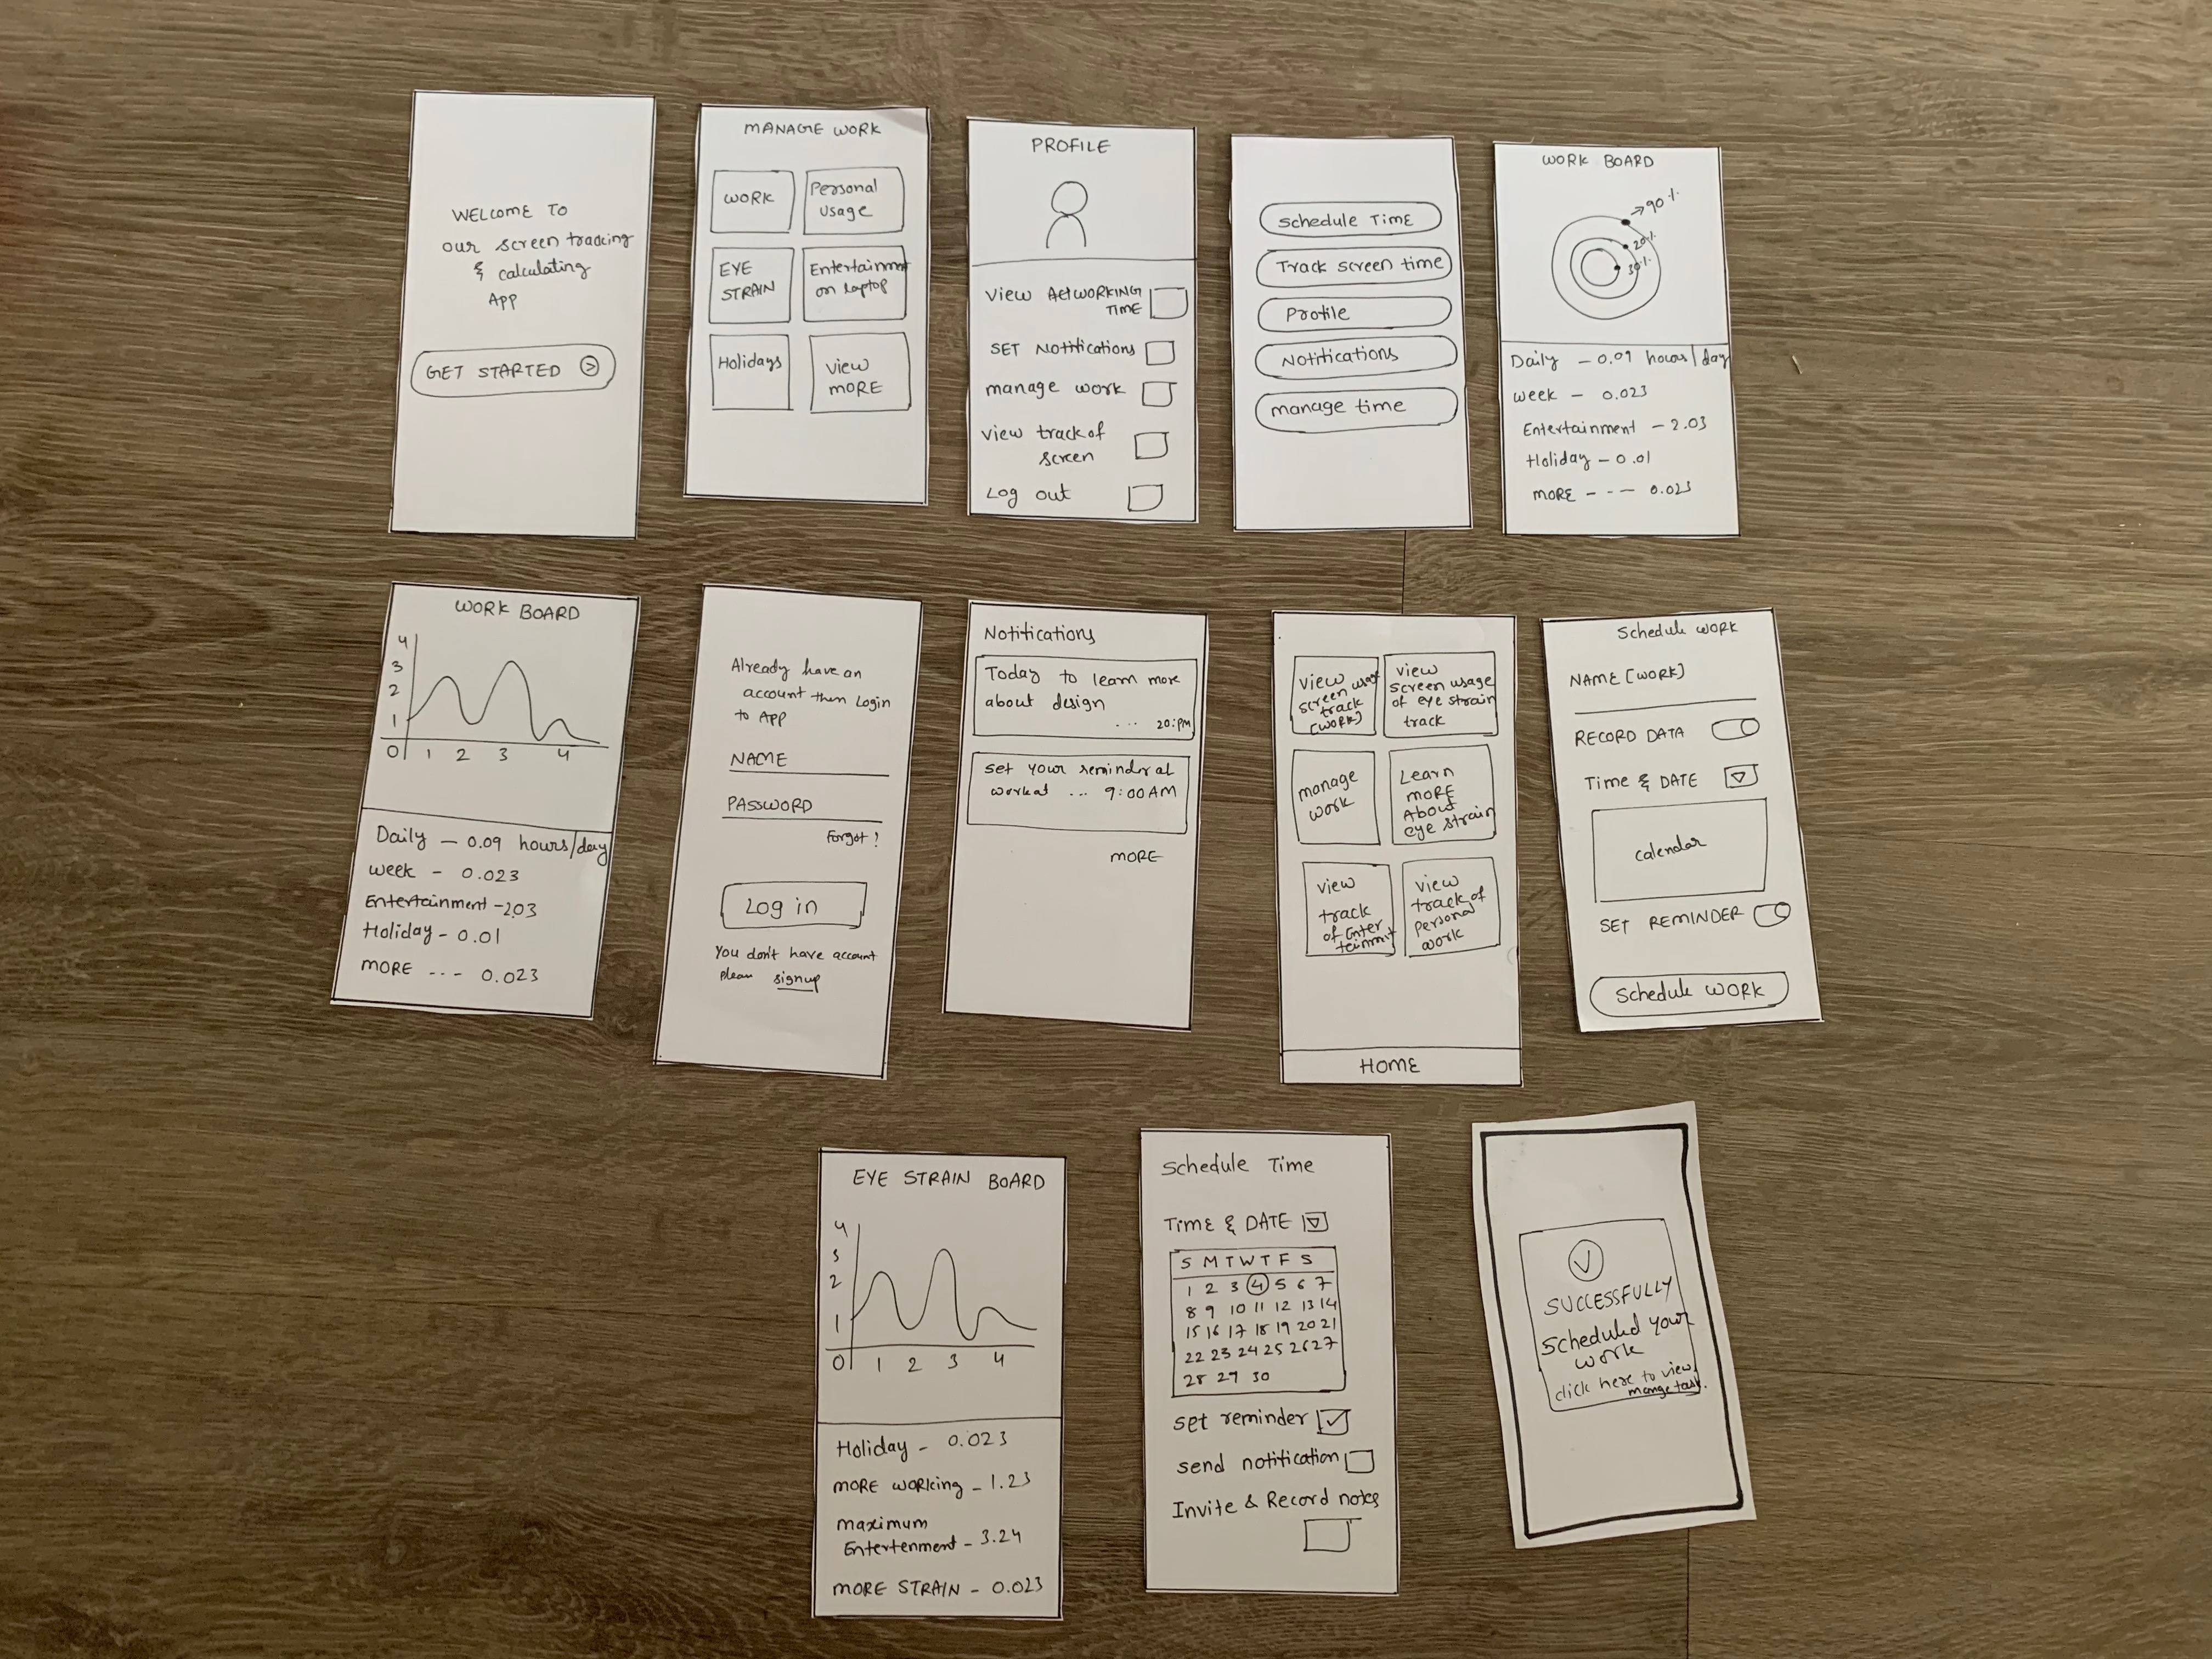 WELCOME TO
our screen tracking
& calculating
APP
GET STARTED
MANAGE WORK
WORK
Personal
usage
EYE
STRAIN
Entertainment
on laptop
Holidays
view
MORE
PROFILE
view
WORKING
TIME
SET Notifications
manage work
view track of
screen
Log out
Schedule Time
Track screen time
Profile
Notifications
manage time
WORK BOARD
→90%
20%
30%
Daily – 0.09 hours/day
week – 0.023
Entertainment – 2.03
Holiday – 0.01
MORE - - – 0.023
WORK BOARD
4
3
2
1
0 1 2 3 4
Daily – 0.09 hours/day
week – 0.023
Entertainment – 2.03
Holiday – 0.01
MORE --- 0.023
Already have an
account then Login
to APP
NAME
PASSWORD
Forgot?
Log in
You don't have account
signup
Notifications
Today to learn more
about design
... 20:PM
set your reminder at
work at ... 9:00 AM
MORE
view
screen usage
track
[work]
view
screen usage
of eye strain
track
manage
work
Learn
MORE
About
eye strain
view
track
of Enter
view
track of
personal
work
HOME
Schedule WORK
NAME [WORK]
RECORD DATA
Time & DATE
calendar
SET REMINDER
Schedule WORK
EYE STRAIN BOARD
4
3
2
1
0 1 2 3 4
Holiday – 0.023
MORE working – 1.23
maximum
Entertenment – 3.24
MORE STRAIN – 0.023
Schedule Time
Time & DATE
S M T W T F S
1 2 3 4 5 6 7
8 9 10 11 12 13 14
15 16 17 18 19 20 21
22 23 24 25 26 27
28 29 30
set reminder
send notification
Invite & Record notes
SUCCESSFULLY
Scheduled your
work
click here to view
mange task.